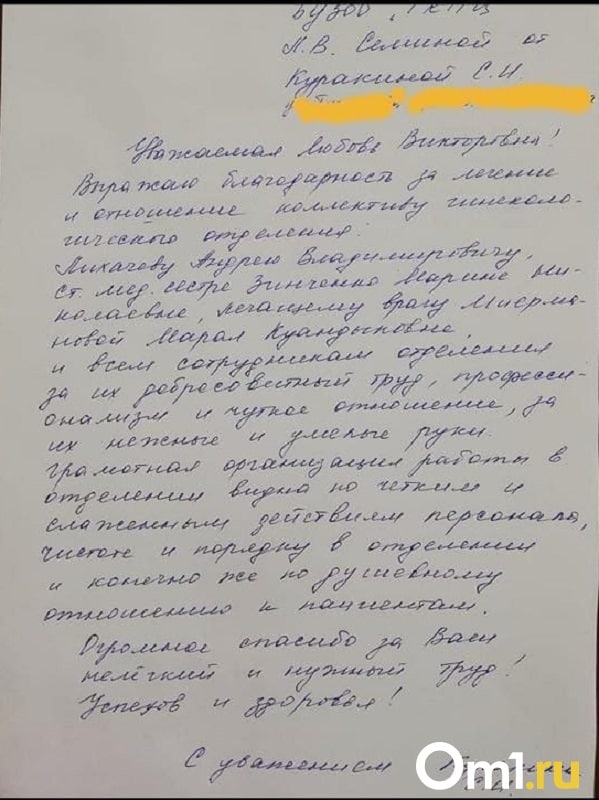 БУЗОО "ГКПЦ
Л.В. Семиной от
Куракиной С.И.
Уважаемая Любовь Викторовна!
Выражаю благодарность за лечение
и отношение коллективу гинеколо-
гического отделения:
Лихачеву Андрею Владимировичу,
ст. мед. сестре Зинченко Марине Ни-
колаевне, лечащему врагу Миерма-
новой Марал Куандыковне,
и всем сотрудникам отделения
за их добросовестный труд, професси-
онализм и чуткое отношение, за
их нежные и умелые руки.
Грамотная организация работы в
отделении видна по четким и
слаженным действиям персонала,
чистоте и порядку в отделении
и конечно же по душевному
отношению к пациентам.
Огромное спасибо за Ваш
нелёгкий и нужный труд!
Успехов и здоровья!
С уважением
Om1.ru